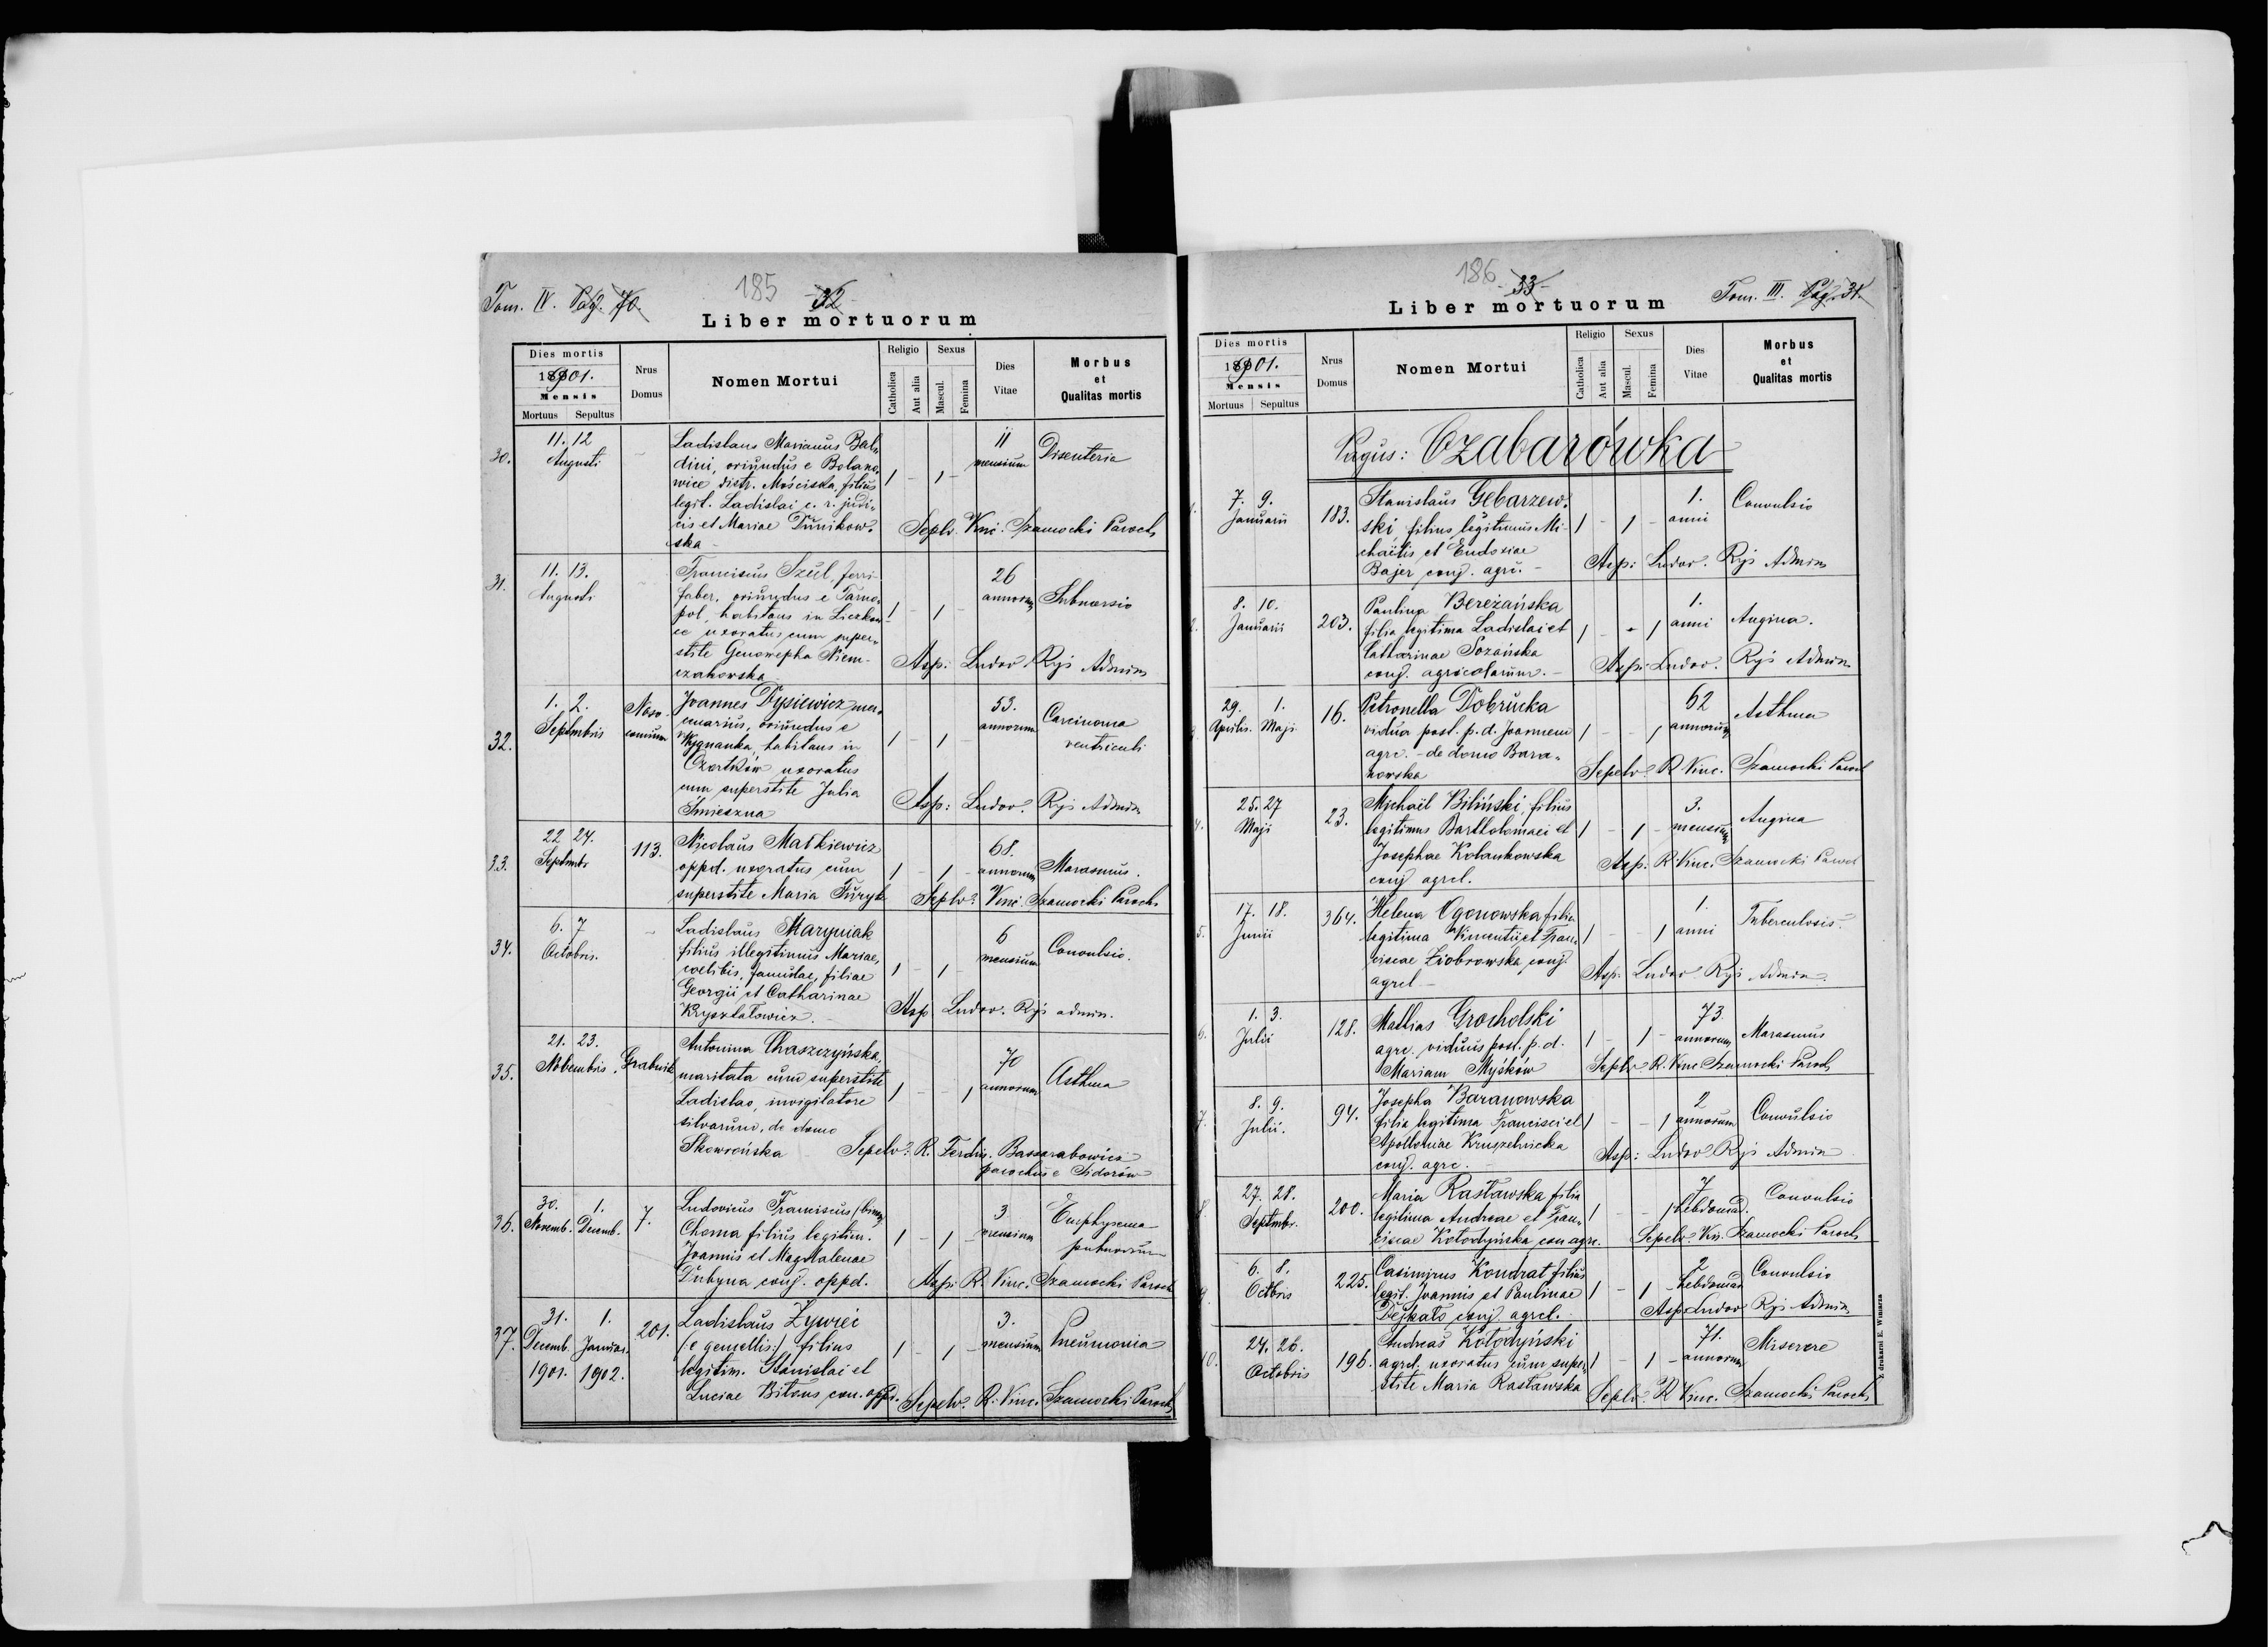 185
Tom. IV. Pag. 70.
32
Liber mortuorum
Dies mortis
1901.
Mensis
Mortuus Sepultus
Nrus Domus
Nomen Mortui
Religio
Catholica
Aut alia
Sexus
Mascul.
Femina
Dies Vitae
Morbus et Qualitas mortis
30.
11. 12
Augusti
Ladislaus Marianus
dini, oriundus e Bolano-
wice distr. Mościska, filius
legit. Ladislai c. r. judi-
cis et Mariae Dunikow-
ska
1 - 1 -
11
mensium
Disenteria
Seplv. Vinc. Szamocki Paroch
31.
11. 13.
Augusti
Franciscus Szul, ferri-
faber, oriundus e Tarno-
pol, habitans in
ce uxoratus cum super-
stite Genowepha Niem-
czakowska
1 - 1 -
26
annorum
Submersio
Asp: Ludov. Ryś Admin
32.
1. 2.
Septmbris
Noso-
comium
Joannes Dysiewicz mer-
cenarius, oriundus e
Wygnanka, habitans in
Czortków uxoratus
cum superstite Julia
Śmieszna
1 - 1
53.
annorum
Carcinoma
ventriculi
Asp: Ludov. Ryś Admin
33.
22 24.
Septmbr
113.
Nicolaus Małkiewicz
oppd. uxoratus cum
superstite Maria Furyk
1 - 1 -
68.
annorum
Marasmus.
Seplv. Vinc. Szamocki Paroch
34.
6. 7
Octobris.
Ladislaus Maryniak
filius illegitimus Mariae,
coelibis, famulae, filiae
Georgii et Catharinae
Kryształowicz.
1 - 1 -
6
mensium
Convulsio.
Asp Ludov. Ryś admin.
35.
21. 23.
Novembris
Grabnik
Antonina Chaszczyńska,
maritata cum superstite
Ladislao, invigilatore
silvarum, de domo
Skowrońska
1 - - 1
70
annorum
Asthma
Sepelv. R. Ferdin. Bassarabowicz
parochus e Sidorów
36.
30. 1.
Novemb. Decemb.
7.
Ludovicus Franciscus
Choma filius legitim.
Joannis et Magdalenae
Dubyna conj. oppd.
1 - 1 -
3
mensium
Emphysema
pulmorum
Asp: R. Vinc. Szamocki Paroch
37.
31. 1.
Decemb. Januar.
1901. 1902.
201.
Ladislaus Żywiec
(:e gemellis:) filius
legitim. Stanislai et
Luciae Bitous con. oppd.
1 - 1 -
3.
mensium
Pneumonia
Sepelv. R. Vinc. Szamocki Paroch
186
33
Tom. III. Pag. 31.
Liber mortuorum
Dies mortis
1901.
Mensis
Mortuus Sepultus
Nrus Domus
Nomen Mortui
Religio
Catholica
Aut alia
Sexus
Mascul.
Femina
Dies Vitae
Morbus et Qualitas mortis
Pagus: Czabarówka
1.
7. 9.
Januarii
183.
Stanislaus Gębarzew-
ski, filius legitimus Mi-
chaëlis et Eudoxiae
Bajer conj. agrc.
1 - 1 -
1.
anni
Convulsio
Asp: Ludov. Ryś Admin
2.
8. 10.
Januarii
203.
Paulina Bereżańska
filia legitima Ladislai et
Catharinae Sozańska
conj. agricolarum.
1 - - 1
1.
anni
Angina.
Asp: Ludov. Ryś Admin
3.
29. 1.
Aprilis. Maji
16.
Petronella Dobrucka
vidua post. p. d. Joannem
agrc. - de domo Bara-
nowska
1 - - 1
62
annorum
Asthma
Sepelv. R. Vinc. Szamocki Paroch
4.
25. 27
Maji
23.
Michaël Biliński, filius
legitimus Bartholomaei et
Josephae Kolankowska
conj agrcl.
1 - 1 -
3.
mensium
Angina
Asp. R. Vinc. Szamocki Paroch
5.
17. 18.
Junii
364.
Helena Ogonowska filia
legitima Vincentii et Fran-
ciscae Ziobrowska conj.
agrcl
1 - - 1
1.
anni
Tuberculosis
Asp. Ludov Ryś Admin.
6.
1. 3.
Julii
128.
Mathias Grocholski
agrc. viduus post. p. d.
Mariam Myśków
1 - 1 -
73.
annorum
Marasmus
Seplv. R. Vinc Szamocki Paroch
7.
8. 9.
Julii.
94.
Josepha Baranowska
filia legitima Francisci et
Apolloniae Kruszelnicka
conj. agrc.
1 - - 1
2
annorum
Convulsio
Asp: Ludov Ryś Admin
8.
27. 28.
Septmbr.
200.
Maria Rasławska filia
legitima Andreae et Fran-
ciscae Kołodyńska con agrc.
1 - - 1
7
hebdomad.
Convulsio
Sepelv. Vin. Szamocki Paroch
9.
6. 8.
Octbris
225.
Casimirus Kondrat filius
legit. Joannis et Paulinae
Dejkało conj agrcl.
1 - 1 -
2
hebdomad
Convulsio
Asp Ludov Ryś Admin
10.
24. 26.
Octobris
196.
Andreas Kołodyński
agrcl. uxoratus cum super-
stite Maria Rasławska
1 - 1 -
71.
annorum
Miserere
Seplv. R Vinc. Szamocki Paroch
Z drukarni E. Winiarza